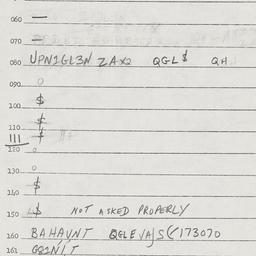 060 —
070 —
080 UPN1GL3N ZAX2 QGL$ QH
090 0
100 $
$
110 $
111
120 0
130 0
140 $
150 $ NOT ASKED PROPERLY
160 BAHAYNT QGLEVAJS(/173070
161